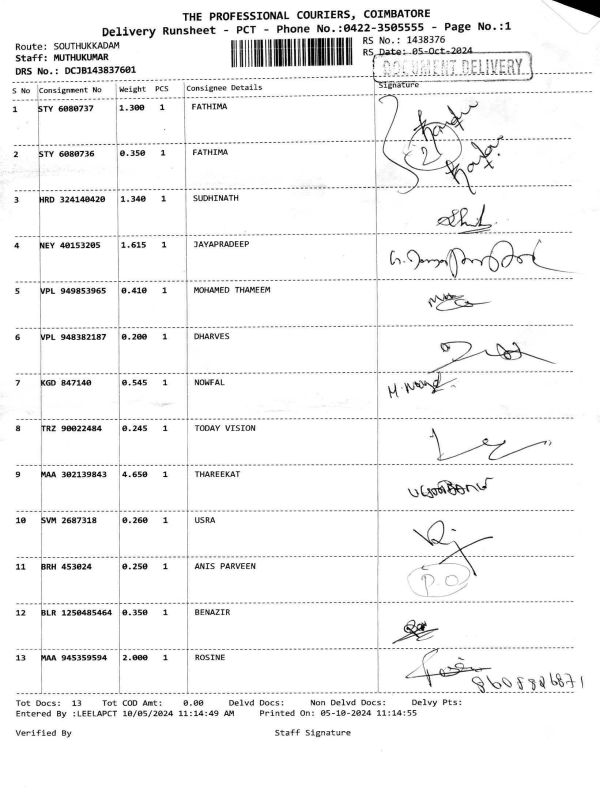 THE PROFESSIONAL COURIERS, COIMBATORE
Delivery Runsheet - PCT - Phone No.:0422-3505555 - Page No.:1
Route: SOUTHUKKADAM RS No.: 1438376
Staff: MUTHUKUMAR RS Date: 05-Oct-2024
DRS No.: DCJB143837601 DOCUMENT DELIVERY
S No Consignment No Weight PCS Consignee Details Signature
1 STY 6080737 1.300 1 FATHIMA
2 STY 6080736 0.350 1 FATHIMA 2
3 HRD 324140420 1.340 1 SUDHINATH
4 NEY 40153205 1.615 1 JAYAPRADEEP
5 VPL 949853965 0.410 1 MOHAMED THAMEEM
6 VPL 948382187 0.200 1 DHARVES
7 KGD 847140 0.545 1 NOWFAL
8 TRZ 90022484 0.245 1 TODAY VISION
9 MAA 302139843 4.650 1 THAREEKAT
10 SVM 2687318 0.260 1 USRA
11 BRH 453024 0.250 1 ANIS PARVEEN P.O
12 BLR 1250485464 0.350 1 BENAZIR
13 MAA 945359594 2.000 1 ROSINE
Tot Docs: 13 Tot COD Amt: 0.00 Delvd Docs: Non Delvd Docs: Delvy Pts:
Entered By :LEELAPCT 10/05/2024 11:14:49 AM Printed On: 05-10-2024 11:14:55
Verified By Staff Signature